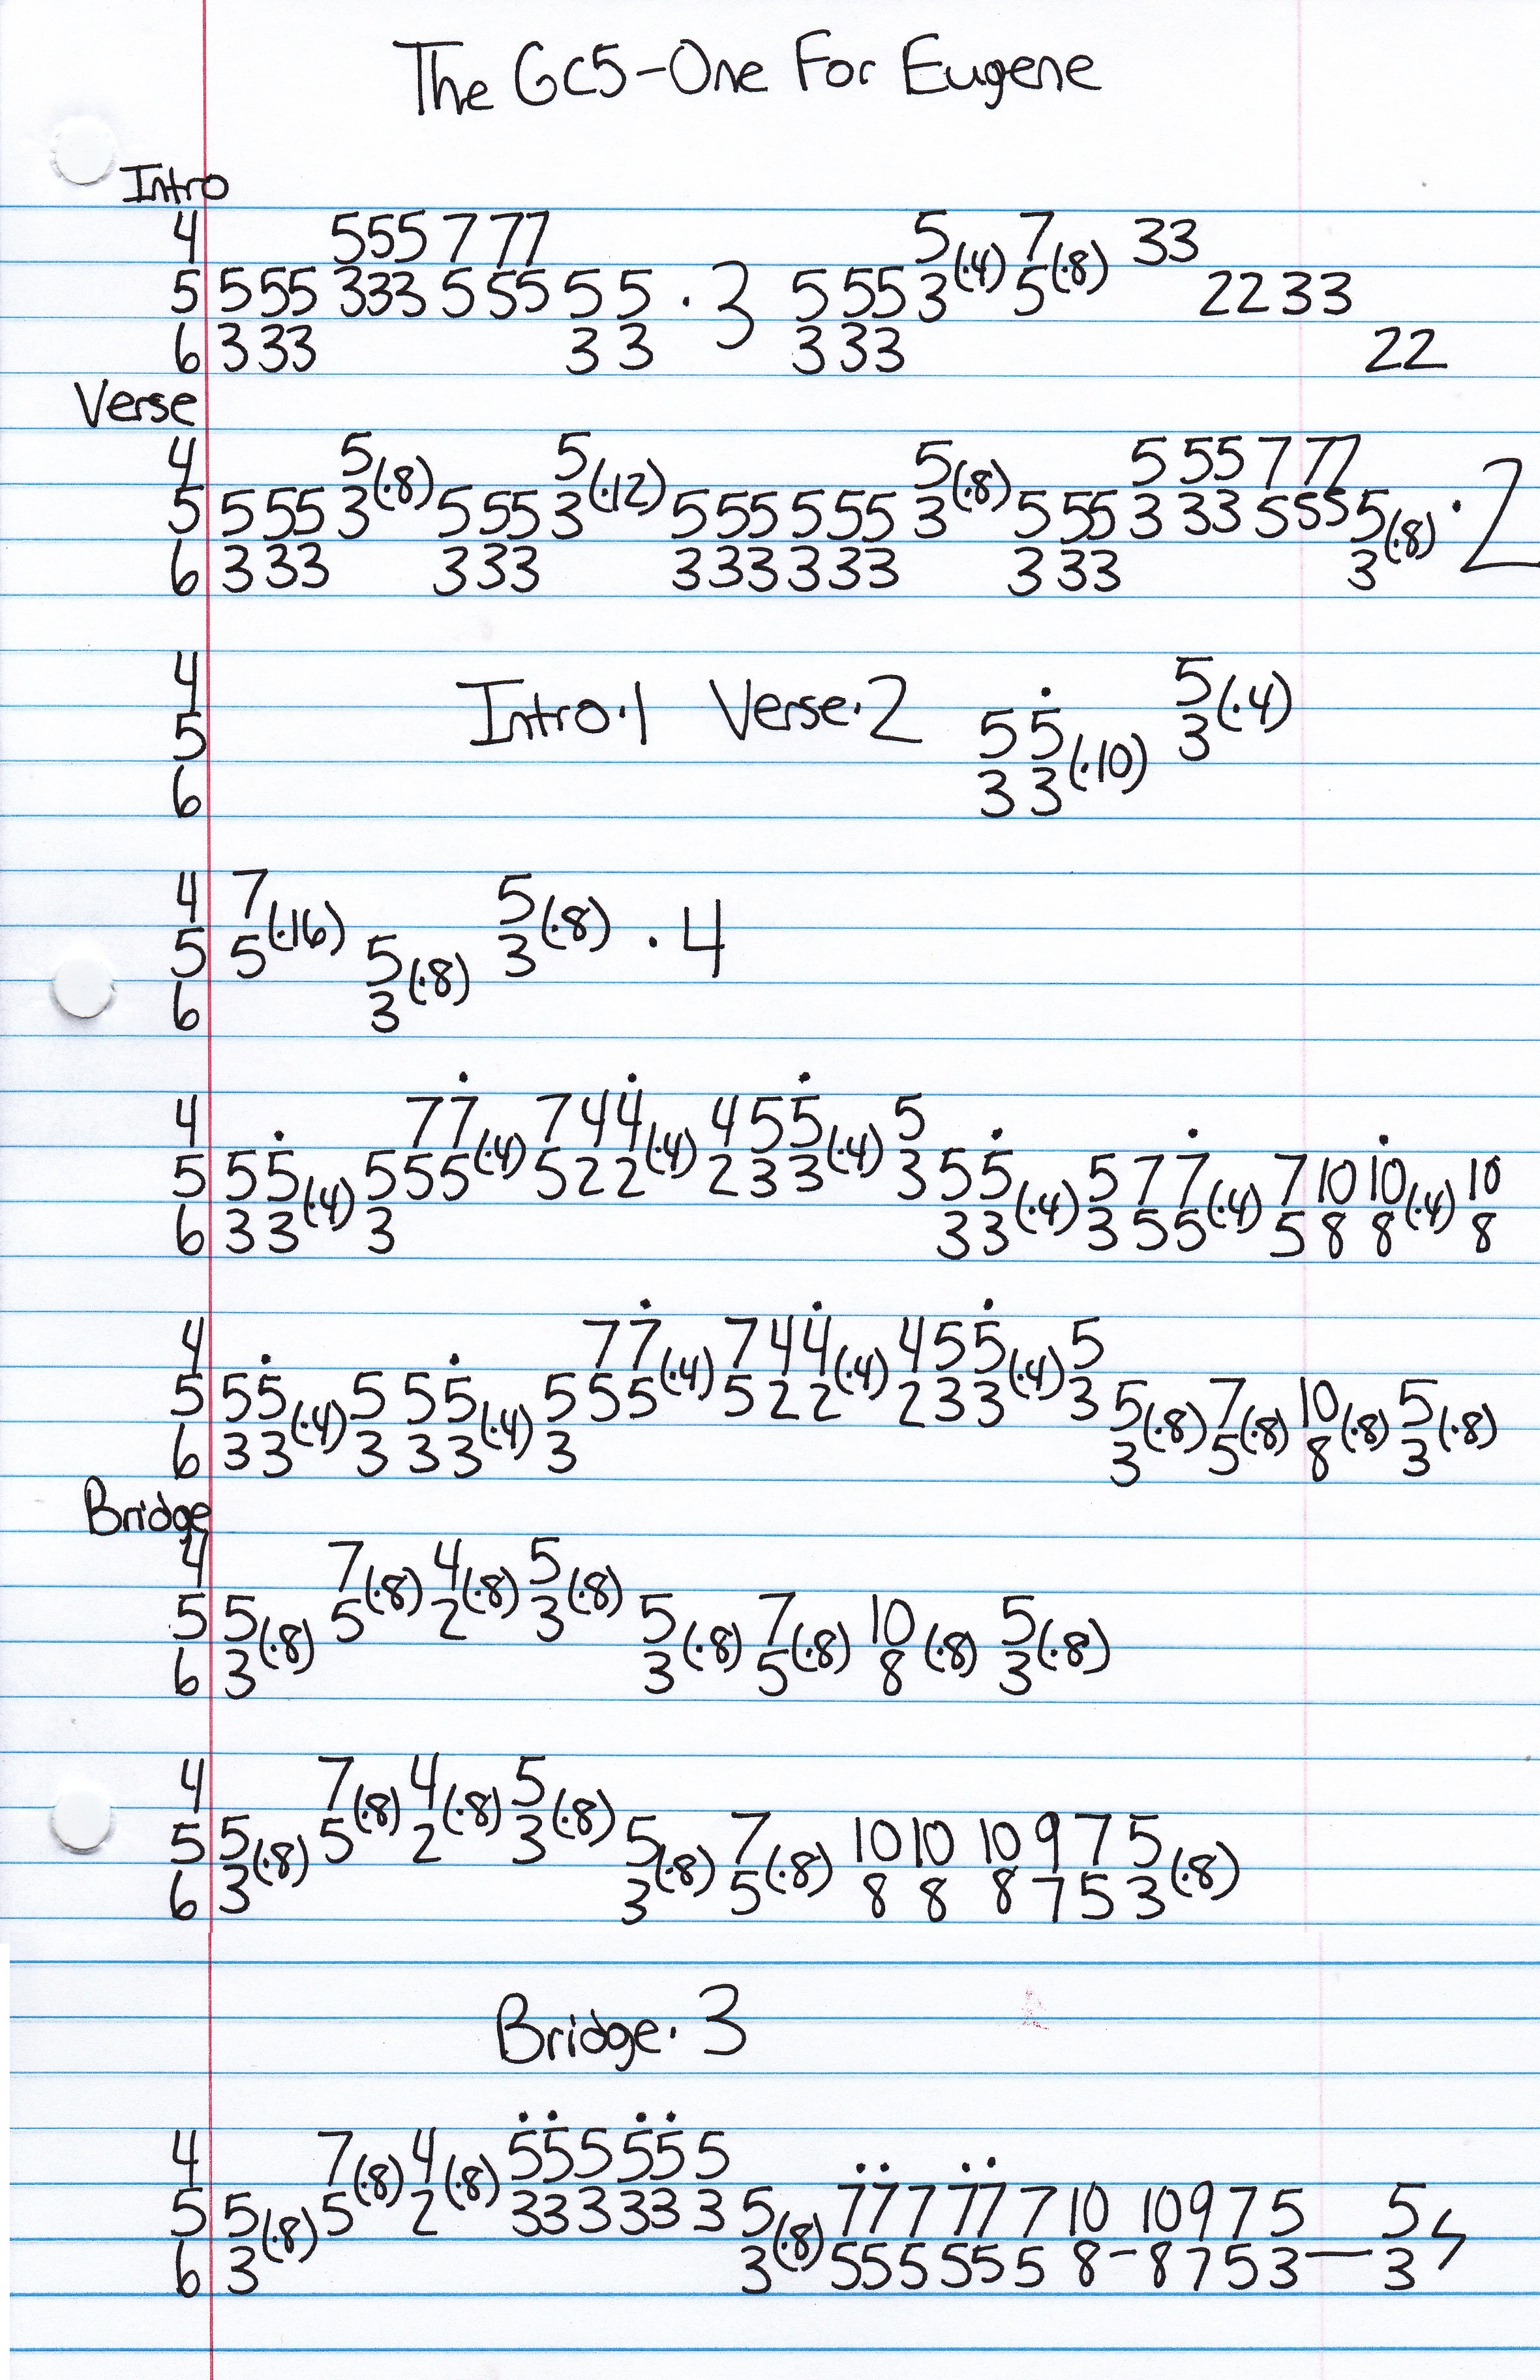 The GC5-One For Eugene
Intro
4 555 7 77 5(·4) 7(·8) 33
5 5 55 333 5 55 5 5 · 3 5 55 3 5 22 33
6 3 33 3 3 3 33 22
Verse
4 5(·8) 5(·12) 5(·8) 5 55 7 77
5 5 55 3 5 55 3 555 555 3 5 55 3 33 5 55 5(·8) · 2
6 3 33 3 33 333 333 3 33 3
4 5(·4)
5 Intro·1 Verse·2 5 5 3
6 3 3(·10)
4 7(·16) 5(·8) · 4
5 5 5(·8) 3
6 3
4 7 7(·4) 7 4 4(·4) 4 5 5(·4) 5
5 5 5(·4) 5 5 5 5 2 2 2 3 3 3 5 5(·4) 5 7 7(·4) 7 10 10(·4) 10
6 3 3 3 3 3 3 5 5 5 8 8 8
4 7 7(·4) 7 4 4(·4) 4 5 5(·4) 5
5 5 5(·4) 5 5 5(·4) 5 5 5 5 2 2 2 3 3 3 5(·8) 7(·8) 10(·8) 5(·8)
6 3 3 3 3 3 3 3 5 8 3
Bridge
4 7(·8) 4(·8) 5(·8)
5 5(·8) 5 2 3 5(·8) 7(·8) 10(·8) 5(·8)
6 3 3 5 8 3
4 7(·8) 4(·8) 5(·8)
5 5(·8) 5 2 3 5(·8) 7(·8) 10 10 10 9 7 5(·8)
6 3 3 5 8 8 8 7 5 3
Bridge·3
4 7(·8) 4(·8) 555 555
5 5(·8) 5 2 333 333 5(·8) 777 777 10 10 9 7 5 5
6 3 3 555 555 8-8 7 5 3—3